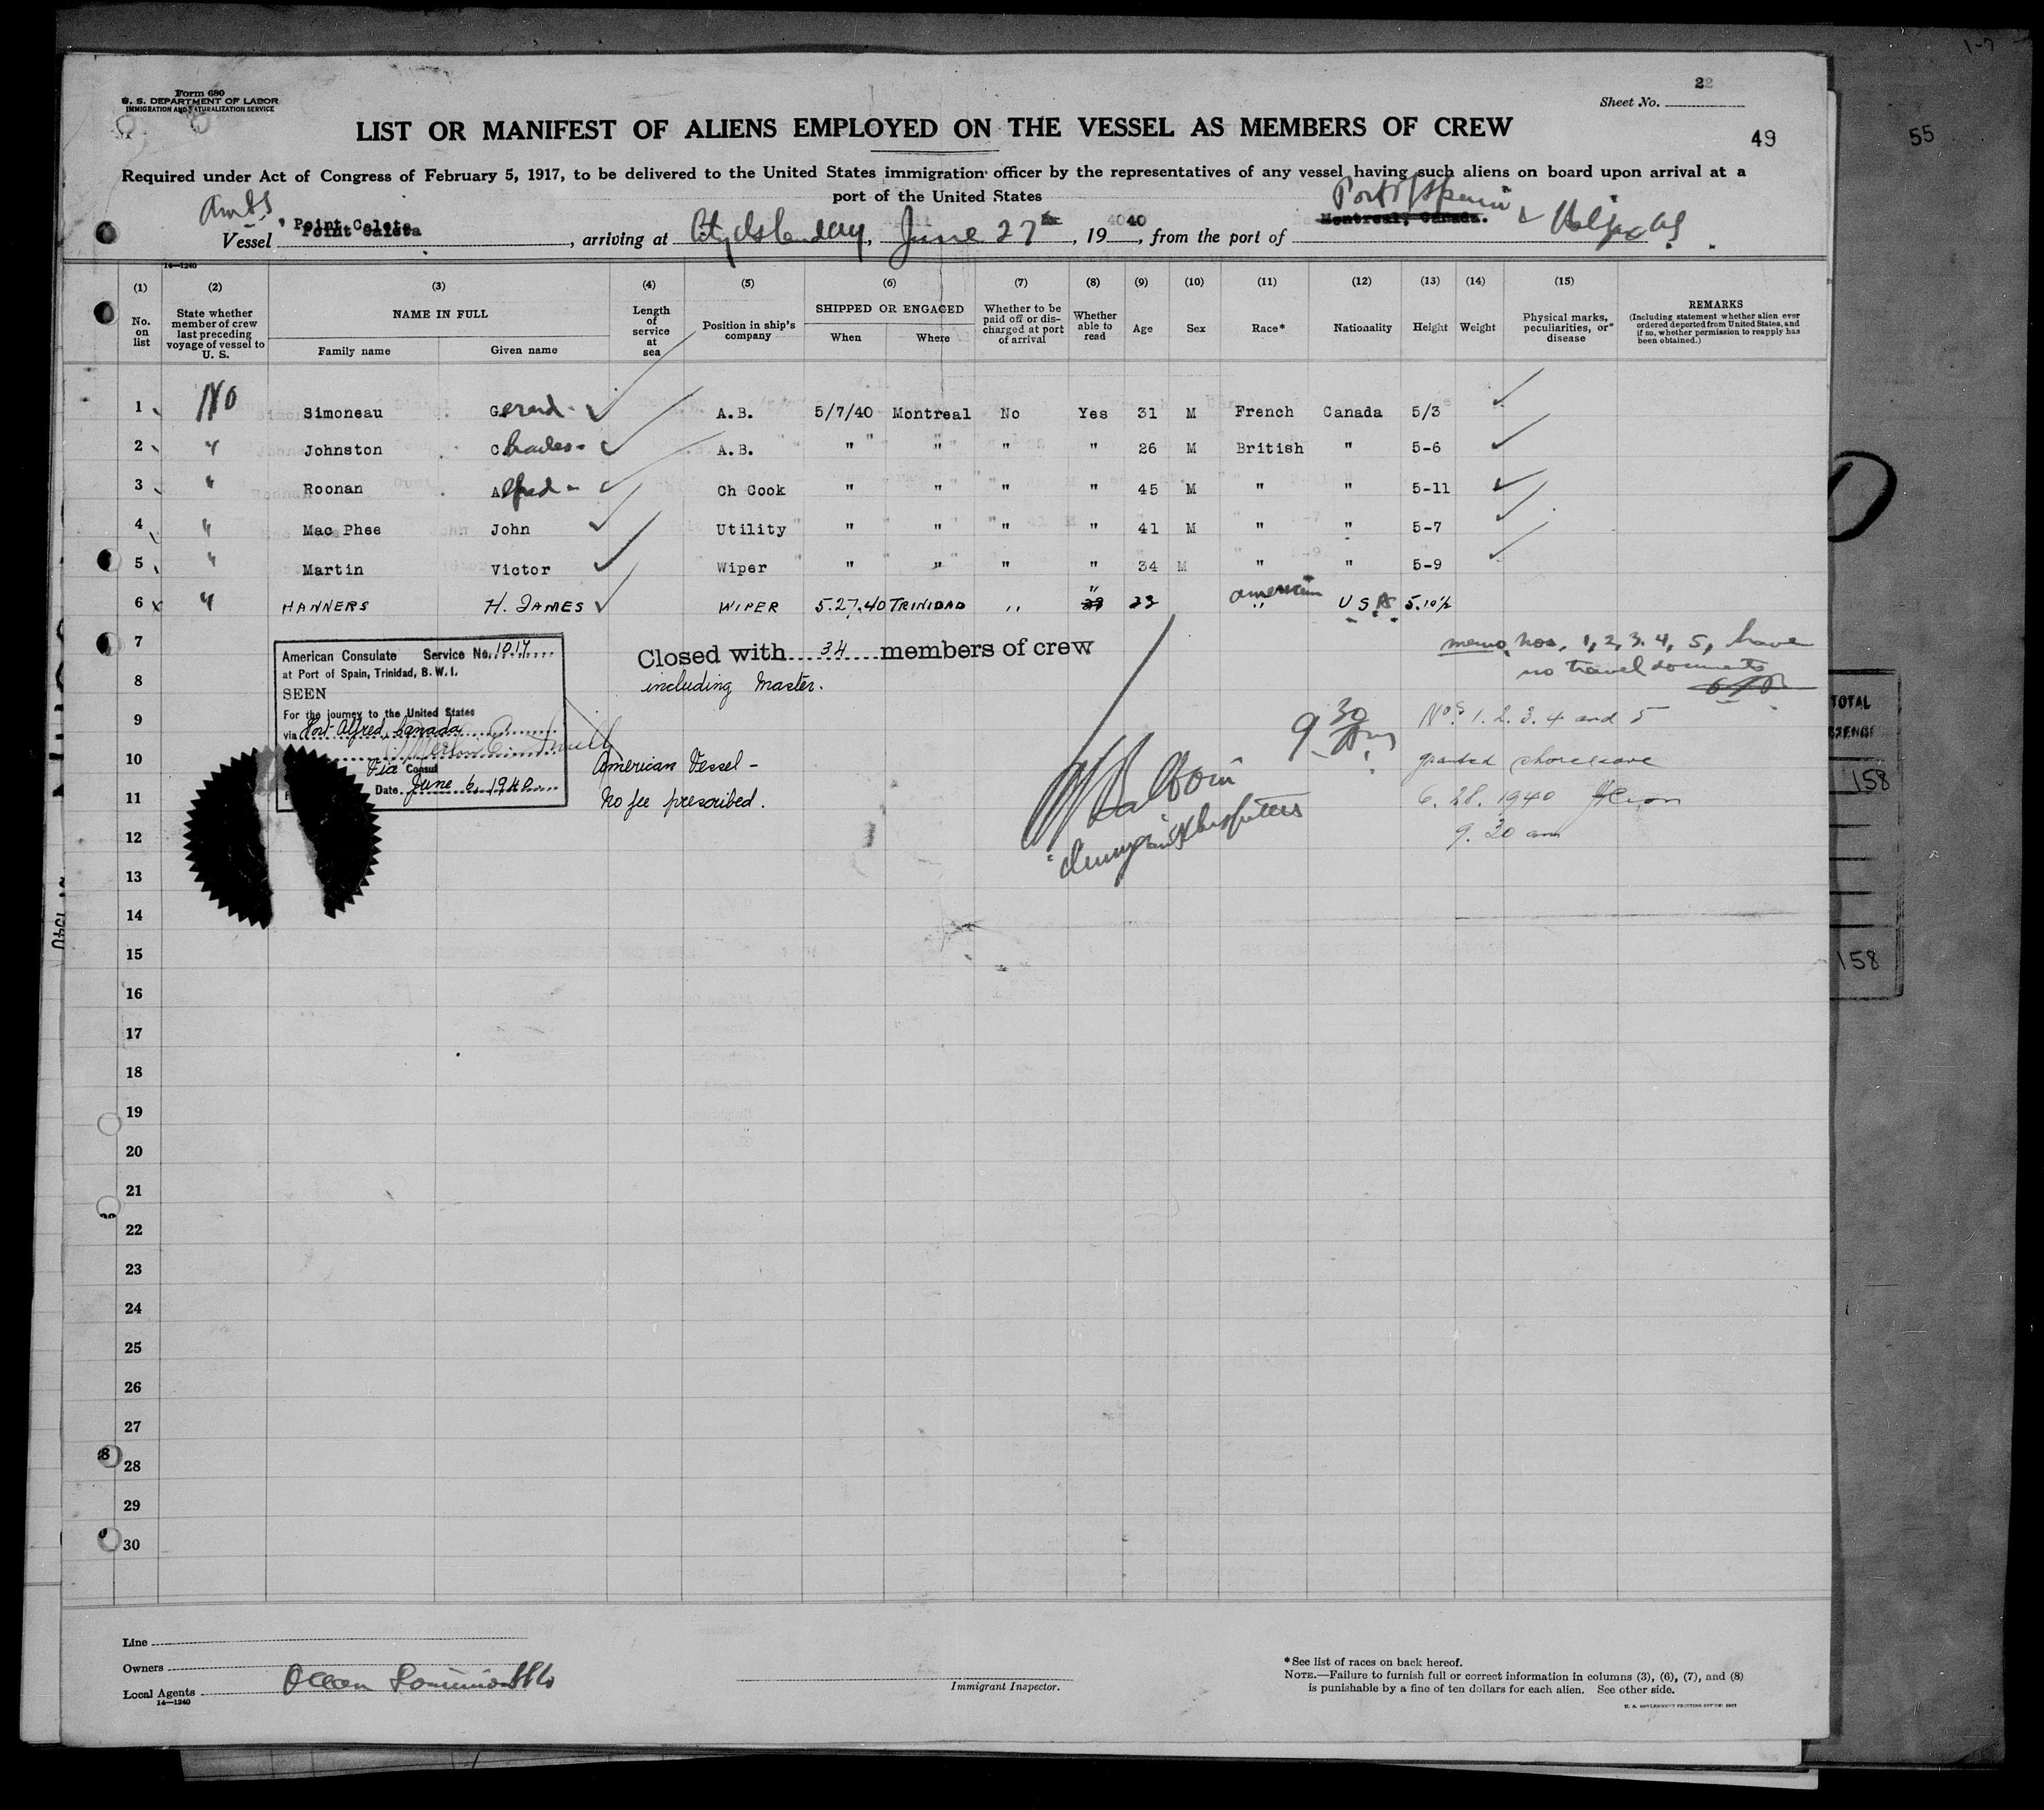 1-7
Form 680
U. S. DEPARTMENT OF LABOR
IMMIGRATION AND NATURALIZATION SERVICE
22
Sheet No.
LIST OR MANIFEST OF ALIENS EMPLOYED ON THE VESSEL AS MEMBERS OF CREW
49
55
Required under Act of Congress of February 5, 1917, to be delivered to the United States immigration officer by the representatives of any vessel having such aliens on board upon arrival at a
port of the United States
Vessel Point Caleta, arriving at City Island, June 27, 1940, from the port of Montreal, Canada. Port of Spain &
14—1240
(1) (2) (3) (4) (5) (6) (7) (8) (9) (10) (11) (12) (13) (14) (15)
No. on list
State whether member of crew last preceding voyage of vessel to U. S.
NAME IN FULL
Family name Given name
Length of service at sea
Position in ship's company
SHIPPED OR ENGAGED
When Where
Whether to be paid off or discharged at port of arrival
Whether able to read
Age
Sex
Race*
Nationality
Height
Weight
Physical marks, peculiarities, or disease
REMARKS
(Including statement whether alien ever ordered deported from United States, and if no, whether permission to reapply has been obtained.)
1 No Simoneau Gerard A.B. 5/7/40 Montreal No Yes 31 M French Canada 5/3
2 " Johnston Charles A.B. " " " " 26 M British " 5-6
3 " Roonan Alfred Ch Cook " " " " 45 M " " 5-11
4 " Mac Phee John Utility " " " " 41 M " " 5-7
5 " Martin Victor Wiper " " " " 34 M " " 5-9
6 x " HANNERS H. JAMES WIPER 5.27.40 TRINIDAD " " 22 american U S A 5.10½
7
8
9
10
11
12
13
14
15
16
17
18
19
20
21
22
23
24
25
26
27
28
29
30
American Consulate Service No. 1017
at Port of Spain, Trinidad, B. W. I.
SEEN
For the journey to the United States
via Port Alfred, Canada
Consul
Date June 6, 1940
Closed with 34 members of crew
including Master.
American Vessel -
No fee prescribed.
memo nos. 1, 2, 3, 4, 5, have
no travel documents
9 30 am
Nos. 1. 2. 3. 4 and 5
granted shore leave
6. 28. 1940
9. 30 am
TOTAL
158
158
8
Line
Owners
Local Agents
14—1240
Immigrant Inspector.
*See list of races on back hereof.
NOTE.—Failure to furnish full or correct information in columns (3), (6), (7), and (8)
is punishable by a fine of ten dollars for each alien. See other side.
U. S. GOVERNMENT PRINTING OFFICE